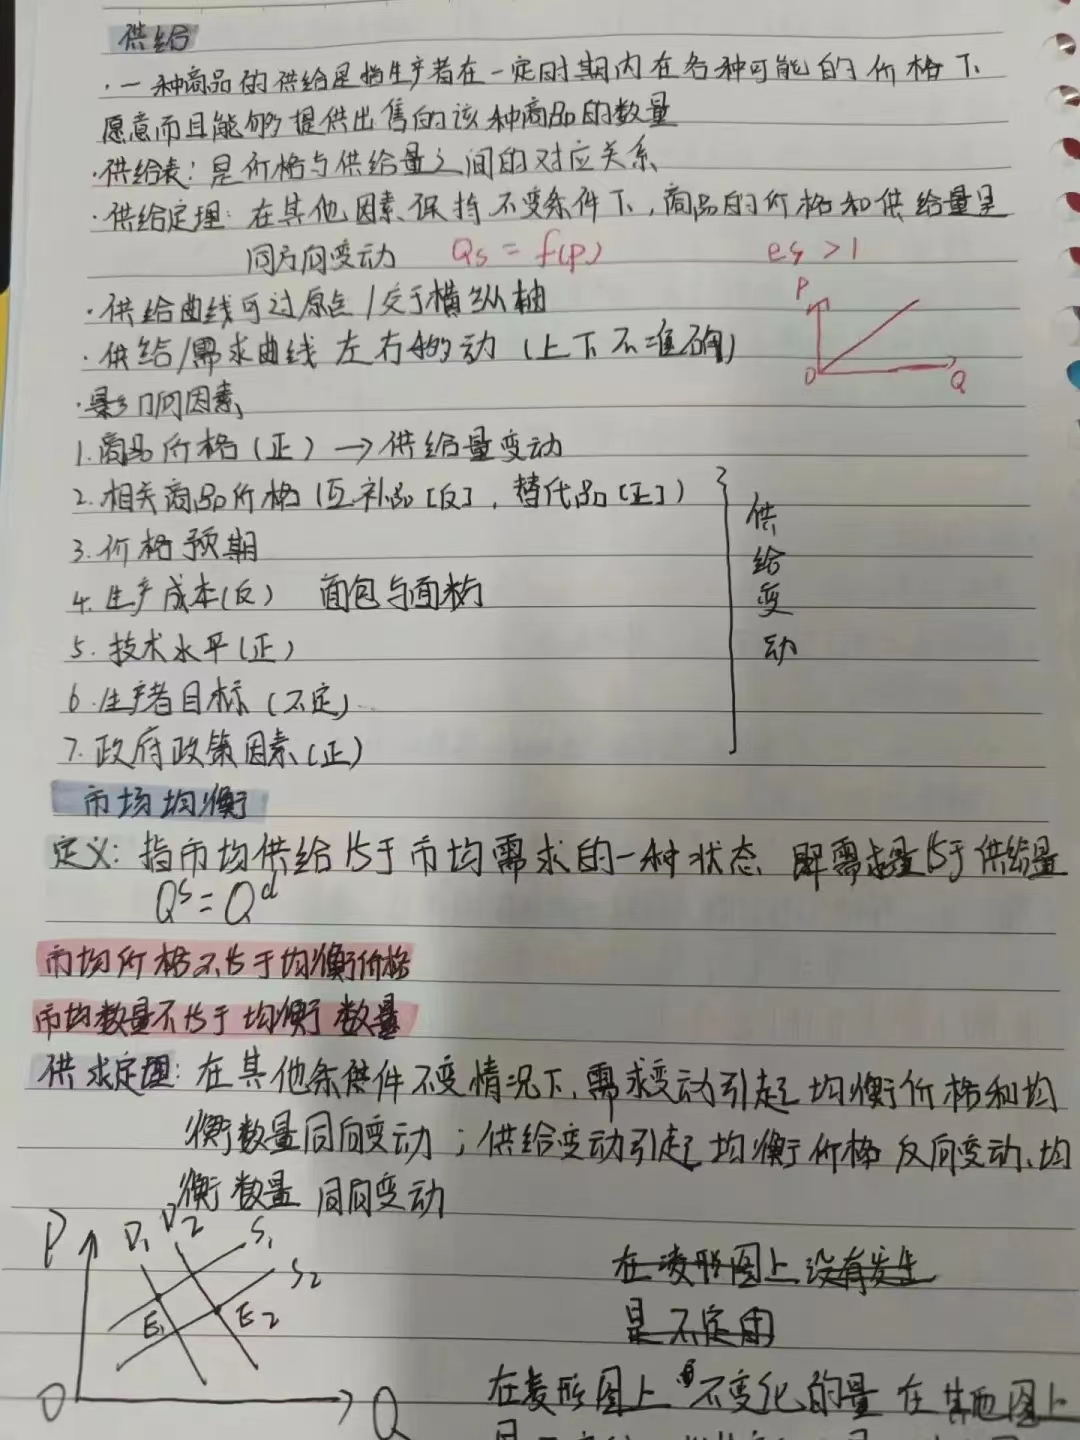 供给
·一种商品的供给是指生产者在一定时期内在各种可能的价格下
愿意而且能够提供出售的该种商品的数量
·供给表:是价格与供给量之间的对应关系
·供给定理:在其他因素保持不变条件下,商品的价格和供给量呈
同方向变动 Qs = f(P) es > 1
·供给曲线可过原点/交于横纵轴
P
·供给/需求曲线左右移动(上下不准确)
O Q
·影响因素
1.商品价格(正)→供给量变动
2.相关商品价格(互补品[反],替代品[正])
3.价格预期
4.生产成本(反) 面包与面粉
5.技术水平(正)
6.生产者目标(不定)
7.政府政策因素(正)
供给变动
市场均衡
定义:指市均供给等于市均需求的一种状态、即需求量等于供给量
Qs = Qd
市均价格不等于均衡价格
市均数量不等于均衡数量
供求定理:在其他条件不变情况下,需求变动引起均衡价格和均
衡数量同向变动;供给变动引起均衡价格反向变动、均
衡数量同向变动
P D1 D2 S1
S2
E1 E2
O Q
在凌形图上没有发生
是不定的
在菱形图上 不变化的量 在其他图上